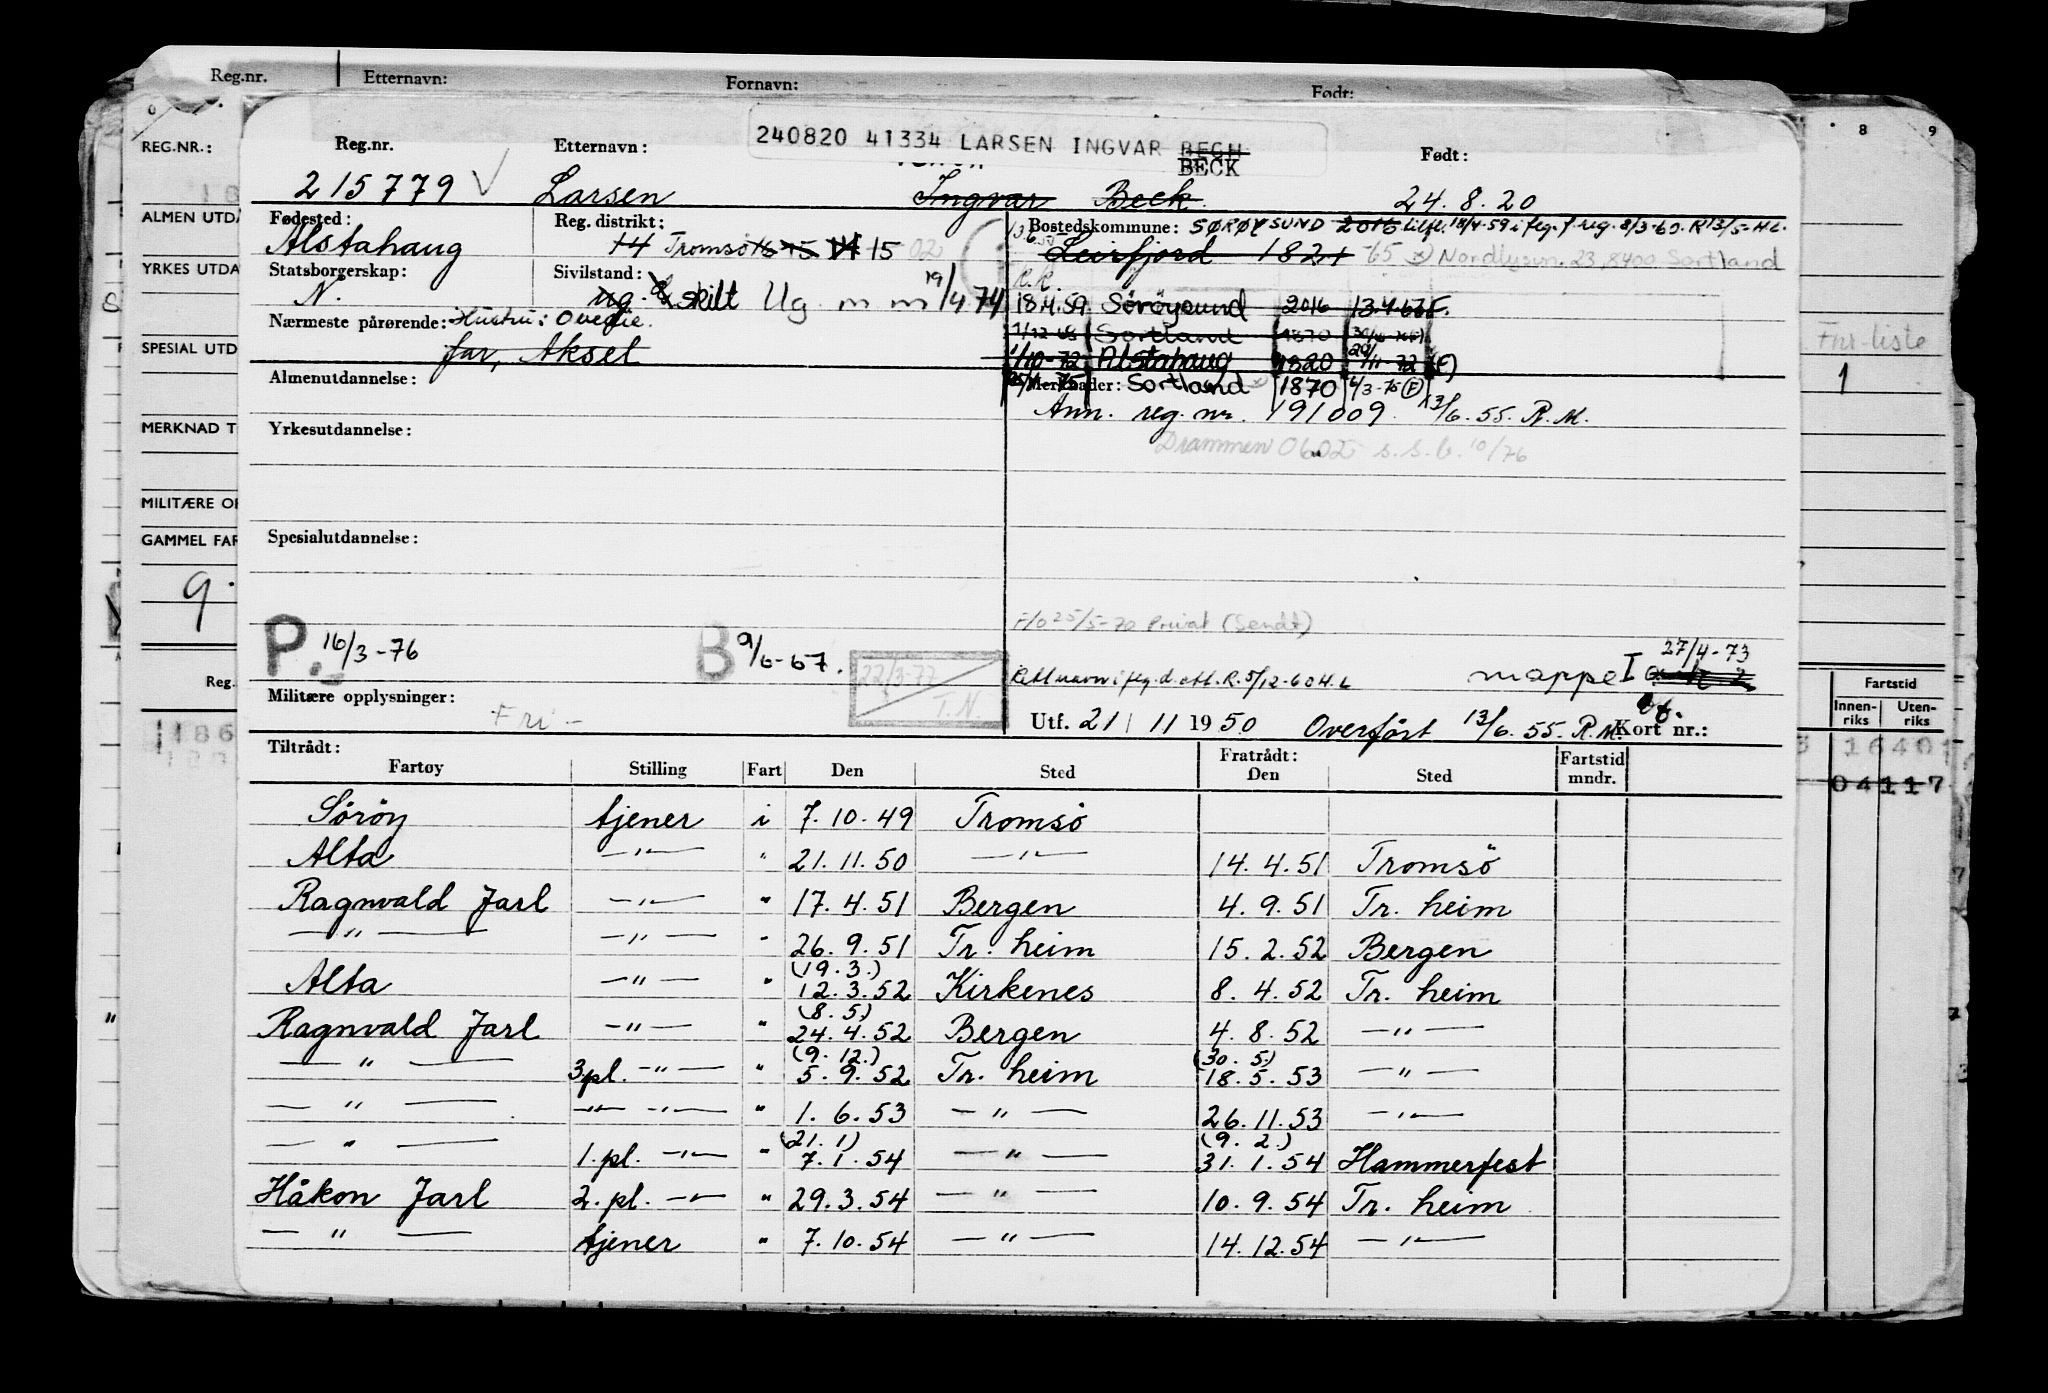 Reg.nr. Etternavn: Fornavn: Født:
8 9
240820 41334 LARSEN INGVAR BEGH
BECK
REG.NR.: Reg.nr. Etternavn: Født:
215779 Larsen Ingvar Beck 24.8.20
ALMEN UTDA Fødested: Reg. distrikt: Bostedskommune: SØRØYSUND
Alstahaug 14 Tromsö 15 Leirfjord 1824 -65 Nordlysvn. 23, 8400 Sortland
YRKES UTDA Statsborgerskap: Sivilstand: R.R.
N. ug. skilt Ug. m m 19/4 74 18.4.59 Söröysund 2016
Nærmeste pårørende: Hustru: Ovedie. Sortland 1870
SPECIAL UTD far, Aksel 1/10-72 Alstahaug 1820 Fnr-liste
Almenutdannelse: Merknader: Sortland 1870 1
Ann. reg. nr. 191009. 13/6. 55. R.M.
MERKNAD T Yrkesutdannelse:
Drammen 0602 s.s.b. 10/76
MILITÆRE OP
GAMMEL FAR Spesialutdannelse:
9.
25/5-70 Privat (Sendt)
P. 16/3-76 B 9/6-67. 22/3-72 T.N. mappe I 27/4-73
Reg. Militære opplysninger: Fri - Utf. 21/11 1950 Overført 13/6. 55. R.M. Kort nr.:
Fartstid
Innen-riks Uten-riks
16401
04117
Tiltrådt: Fratrådt:
Fartøy Stilling Fart Den Sted Den Sted Fartstid mndr.
Söröy tjener i 7.10.49 Tromsö
Alta —"— " 21.11.50 —"— 14.4.51 Tromsö
Ragnvald Jarl —"— " 17.4.51 Bergen 4.9.51 Tr. heim
—"— —"— " 26.9.51 Tr. heim 15.2.52 Bergen
(19.3.)
Alta —"— " 12.3.52 Kirkenes 8.4.52 Tr. heim
(8.5.)
Ragnvald Jarl —"— " 24.4.52 Bergen 4.8.52 —"—
(9.12.) (30.5.)
—"— 3.pl. —"— " 5.9.52 Tr. heim 18.5.53 —"—
—"— —"— —"— " 1.6.53 —"— 26.11.53 —"—
(21.1) (9.2.)
—"— 1.pl. —"— " 7.1.54 —"— 31.1.54 Hammerfest
Håkon Jarl 2.pl. —"— " 29.3.54 —"— 10.9.54 Tr. heim
—"— tjener " 7.10.54 —"— 14.12.54 —"—